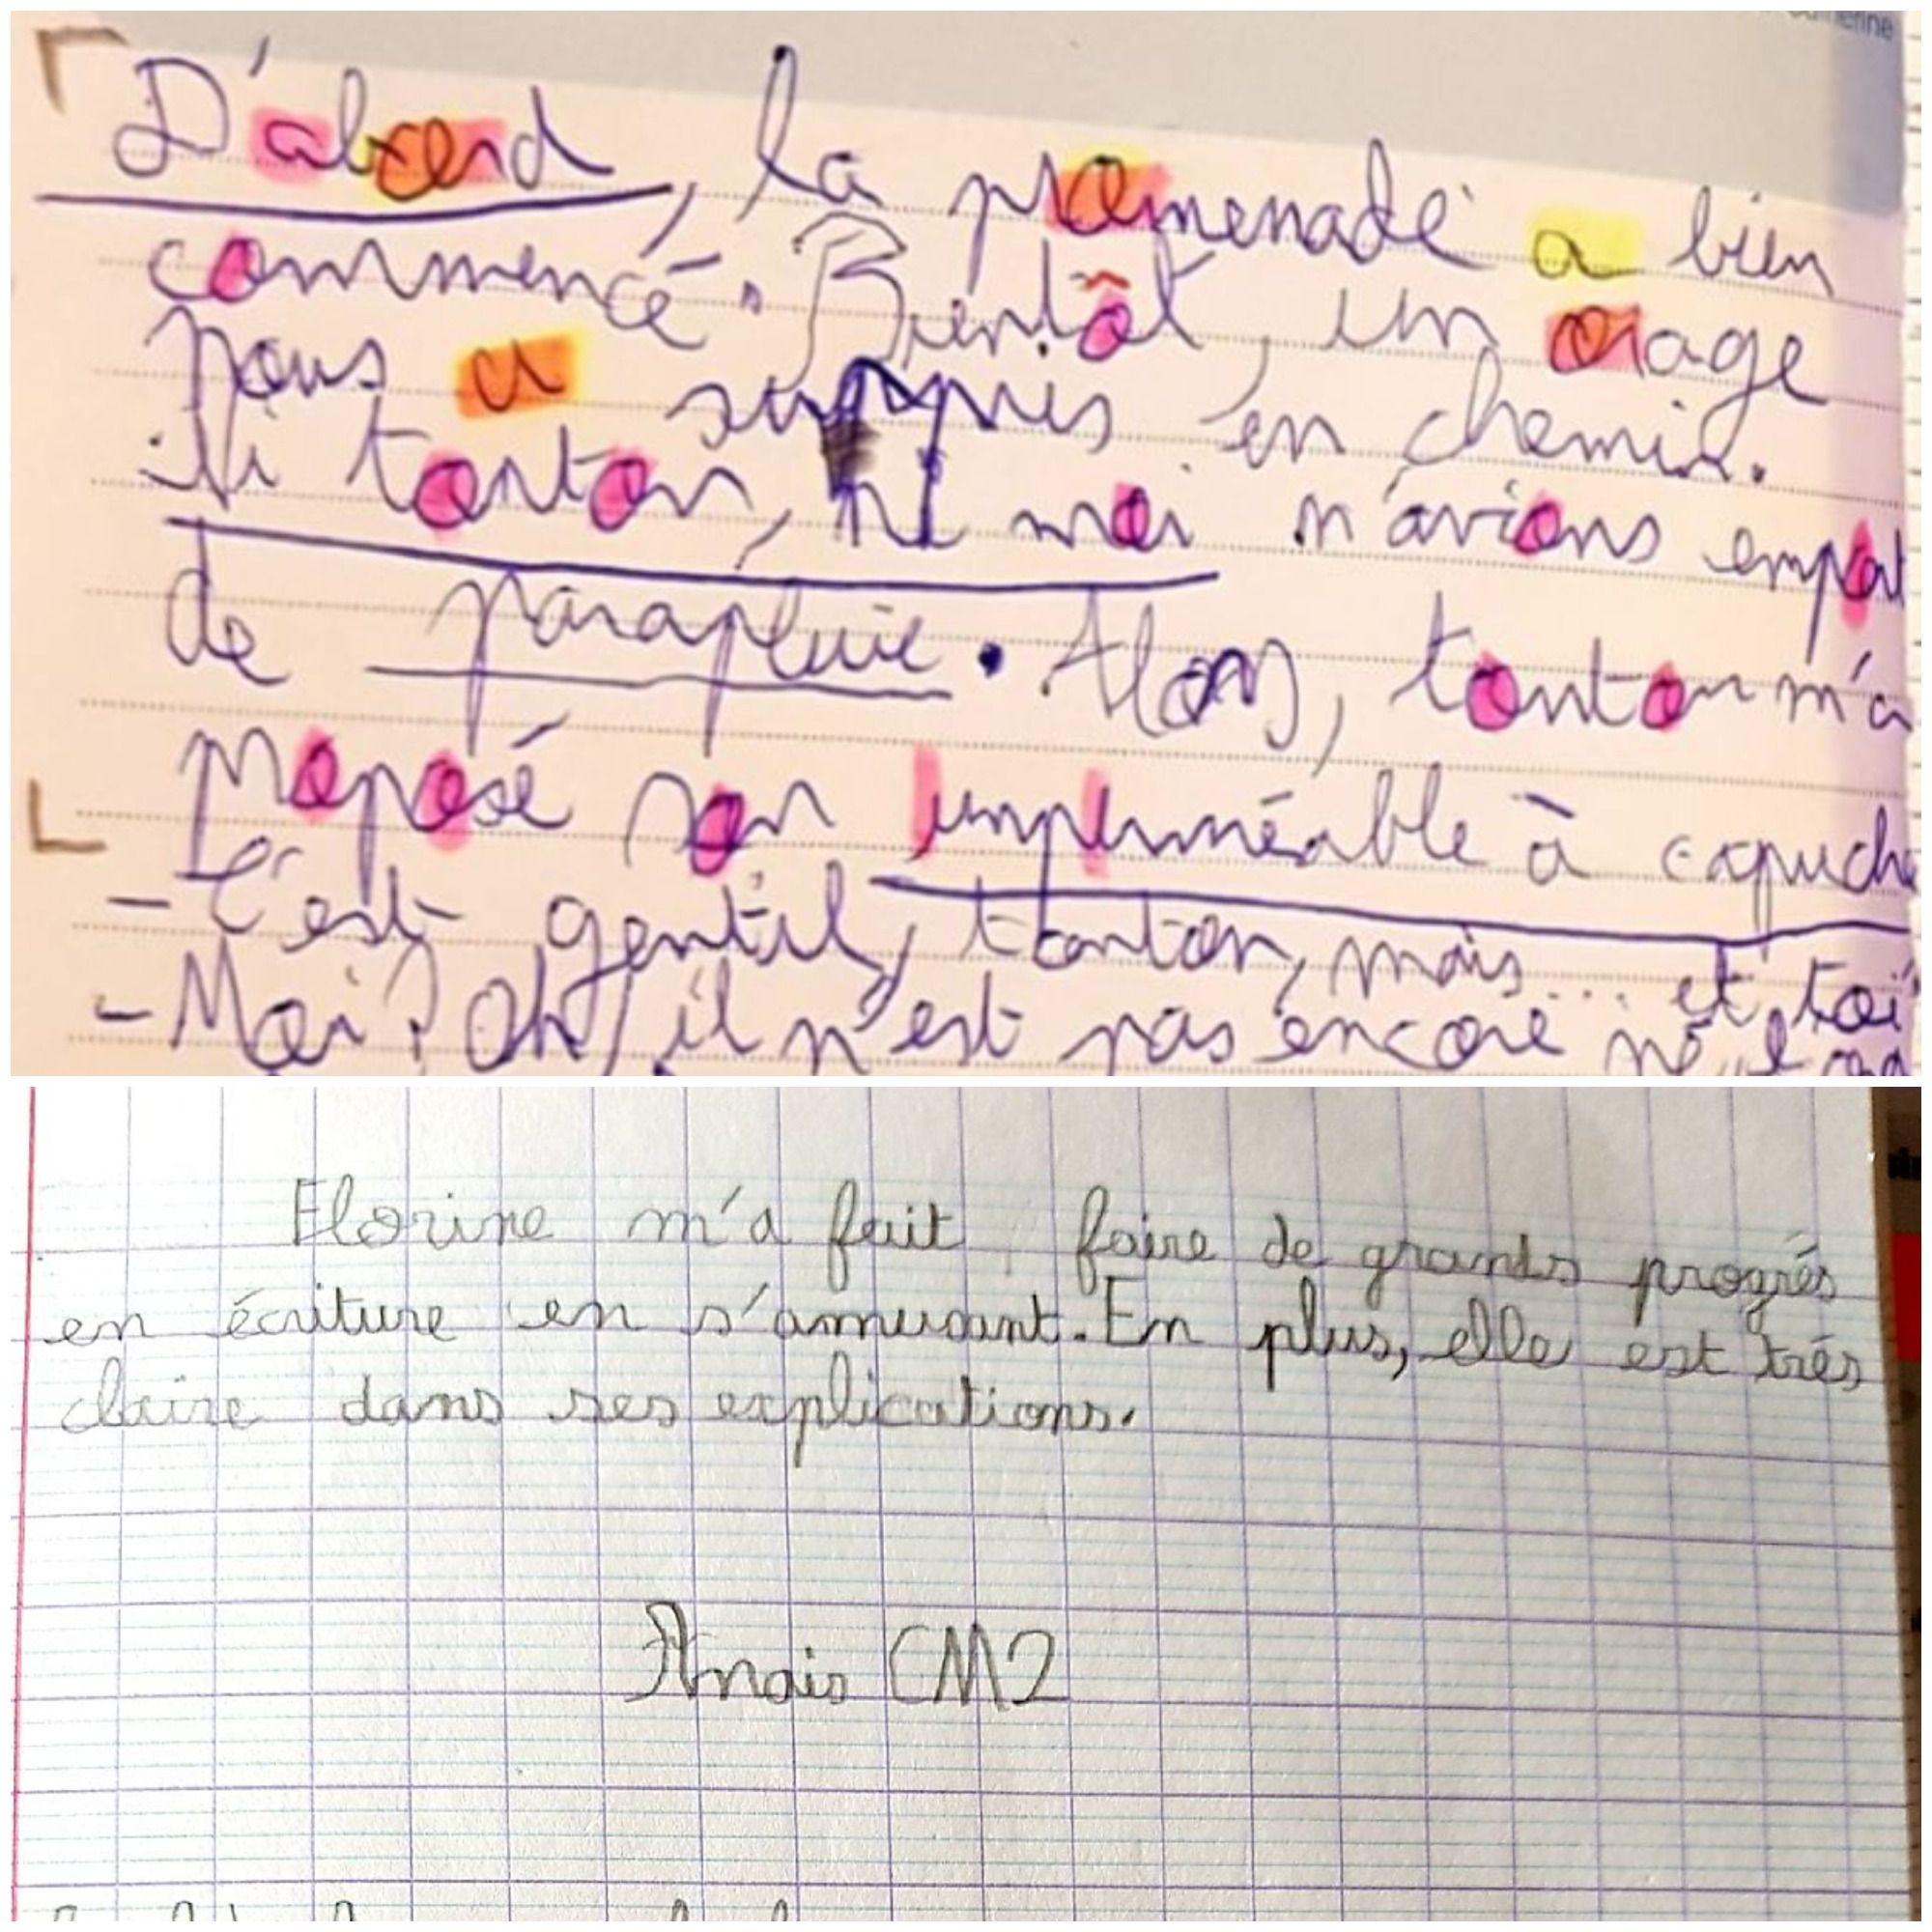 D'abord, la promenade a bien
commencé. Bientôt, un orage
nous a surpris en chemin.
Ni tonton, ni moi n'avions emport
de parapluie. Alors, tonton m'a
proposé son imperméable à capuche
- C'est gentil, tonton, mais... et toi
- Moi? Oh, il n'est pas encore né
Florine m'a fait faire de grands progrés
en écriture en s'amusant. En plus, elle est trés
claire dans ses explications.
Anais CM2